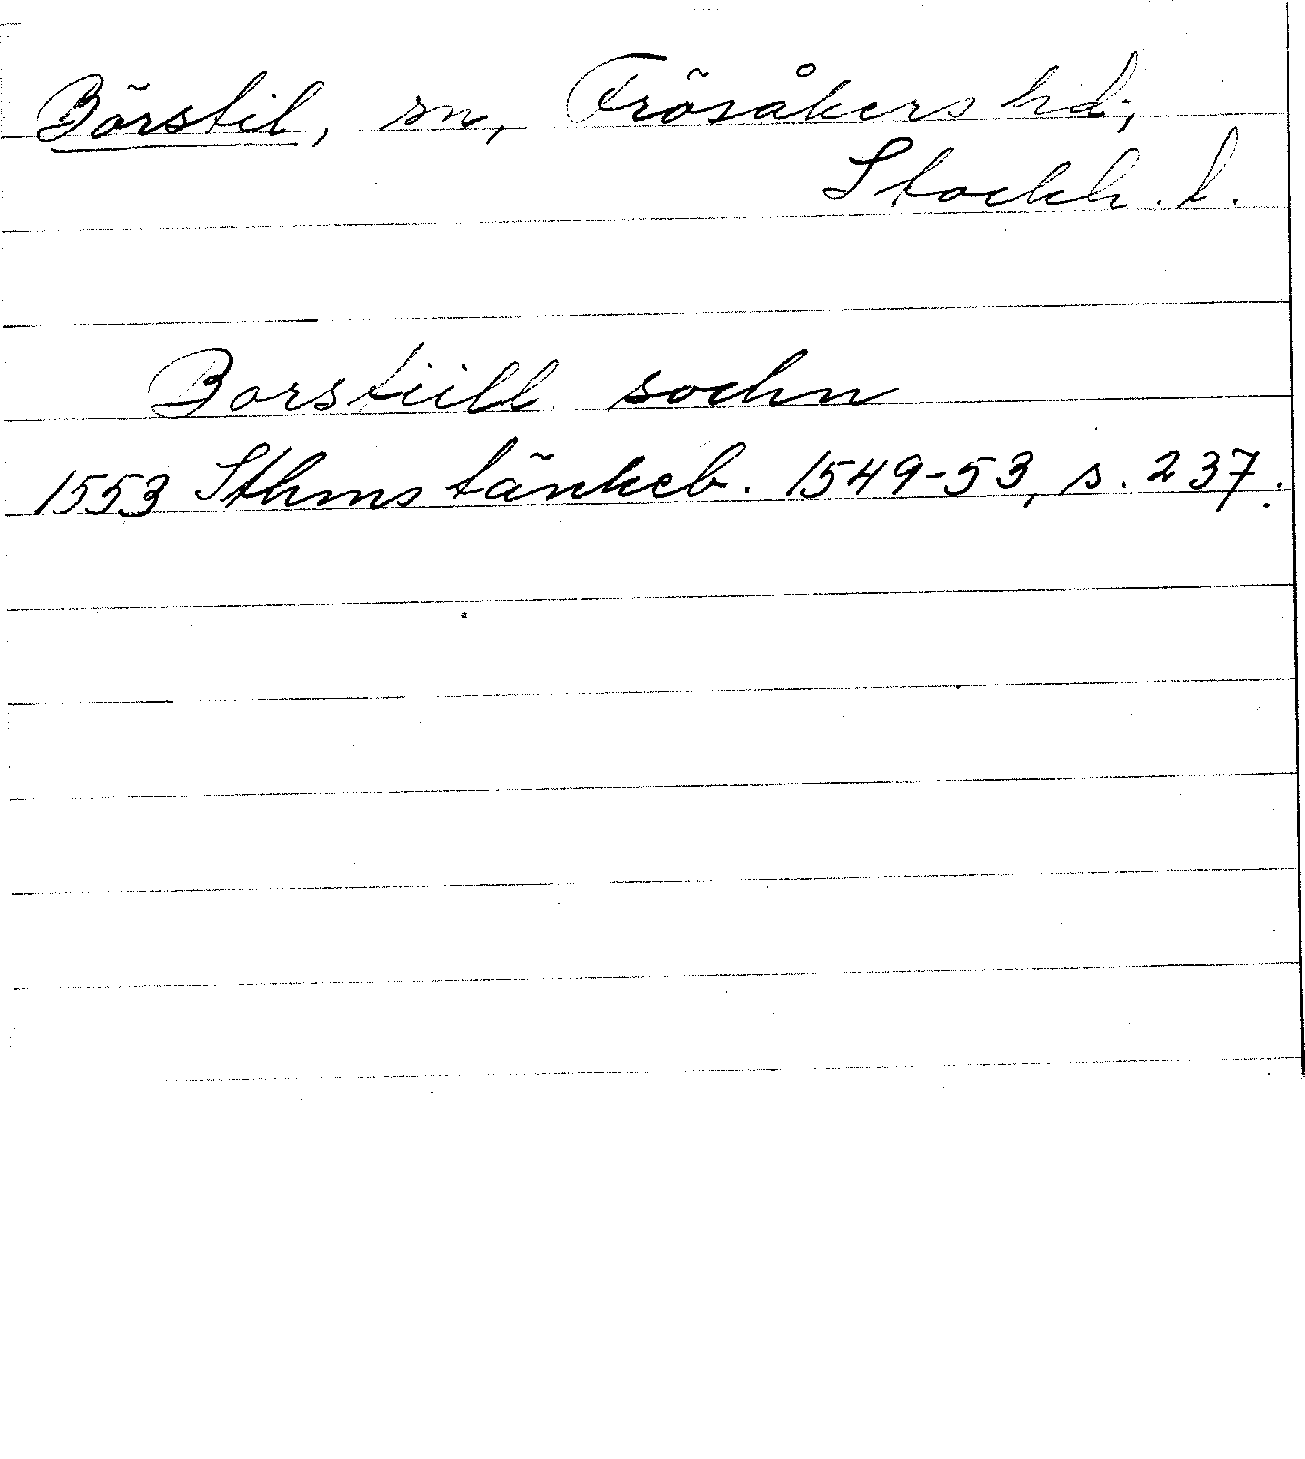 Börstil, sn, Frösåkers hd;
Stockh. l.
Borstiill sochn
1553 Sthms tänkeb. 1549-53, s. 237.